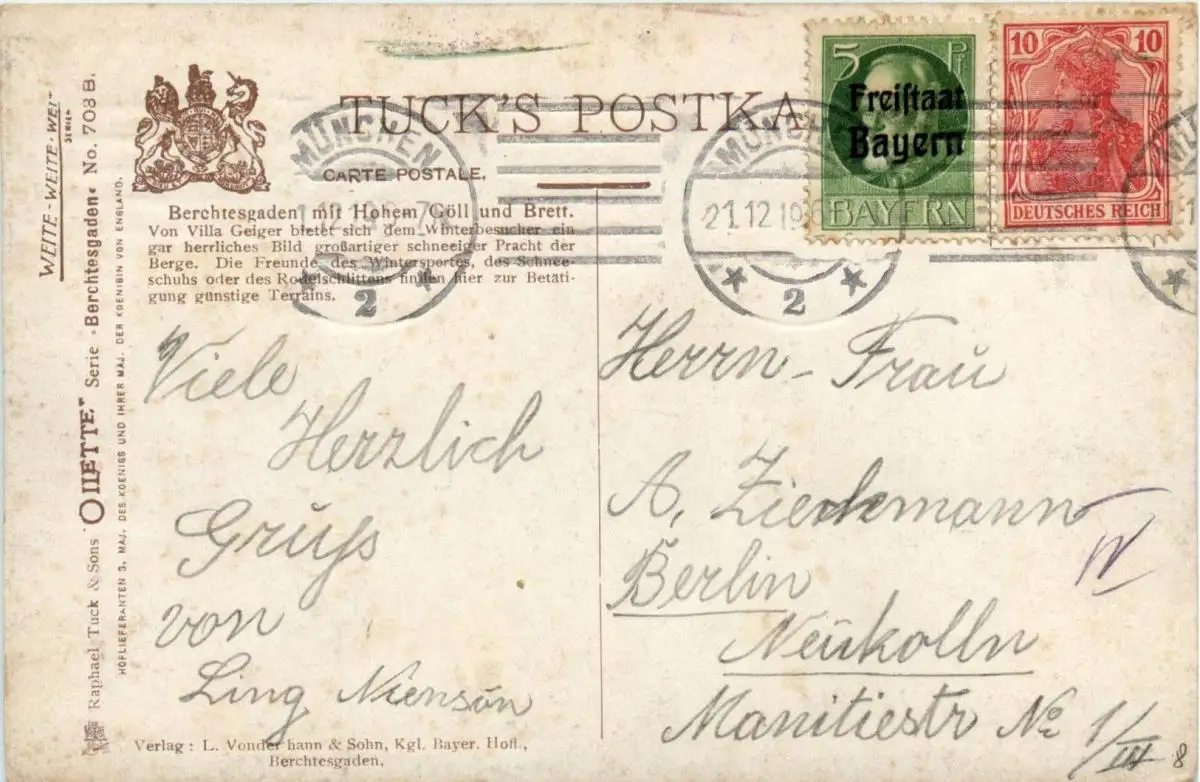 TUCK'S POSTKA
CARTE POSTALE.
MÜNCHEN
2
MÜNC
21.12.19
2
5 Pf
Freistaat
Bayern
BAYERN
10 10
DEUTSCHES REICH
WEITE-WEITE-WEL
SERIEN
Raphael Tuck & Sons "OILETTE" Serie »Berchtesgaden« No. 708 B.
HOFLIEFERANTEN S. MAJ. DES KOENIGS UND IHRER MAJ. DER KOENIGIN VON ENGLAND.
Berchtesgaden mit Hohem Göll und Brett.
Von Villa Geiger bietet sich dem Winterbesucher ein
gar herrliches Bild großartiger schneeiger Pracht der
Berge. Die Freunde des Wintersportes, des Schnee-
schuhs oder des Rodelschlittens finden hier zur Betäti-
gung günstige Terrains.
Viele
Herzlich
Gruß
von
Ling
Verlag: L. Vonderthann & Sohn, Kgl. Bayer. Hofl.,
Berchtesgaden.
Herrn - Frau
A. Ziekmann
Berlin
Neukolln
Manitiestr No 1/III
IV
8